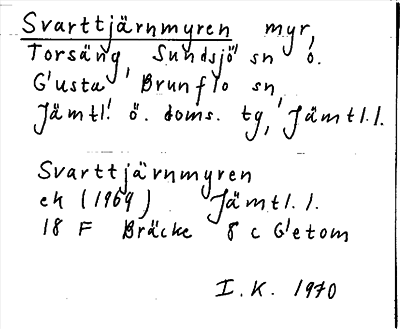 Svarttjärnmyren myr,
Torsäng, Sundsjö sn o.
Gusta, Brunflo sn,
Jämtl. ö. doms. tg, Jämtl.l.
Svarttjärnmyren
ek (1969) Jämtl.l.
18 F Bräcke 8 c Getom
I.K. 1970